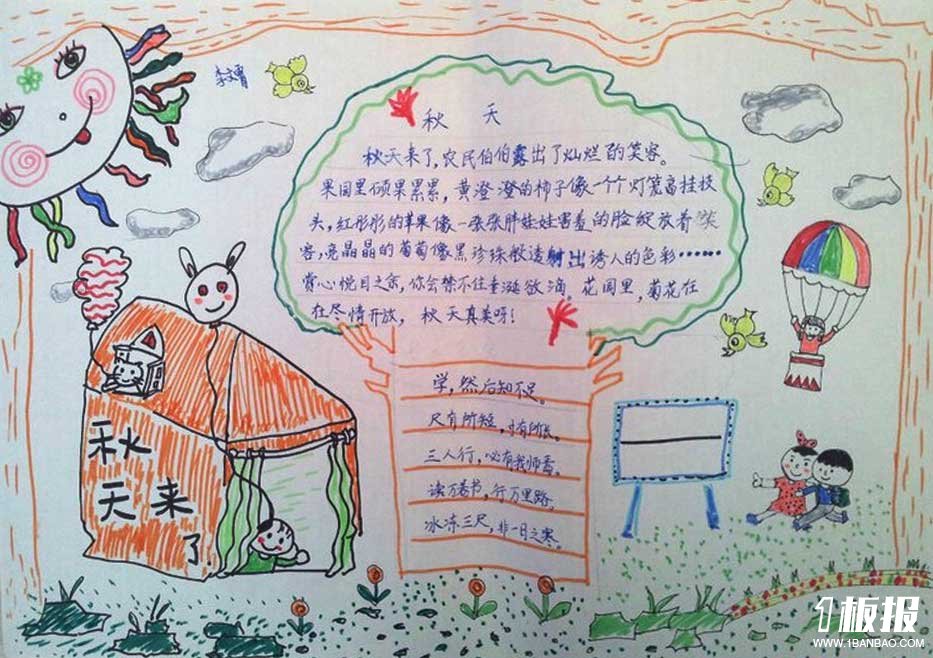 秋天
秋天来了，农民伯伯露出了灿烂的笑容。
果园里硕果累累，黄澄澄的柿子像一个个灯笼高挂枝
头，红彤彤的苹果像一张张胖娃娃害羞的脸绽放着笑
容，亮晶晶的葡萄像黑珍珠般透射出诱人的色彩……
赏心悦目之余，你会禁不住垂涎欲滴。花园里，菊花在
在尽情开放，秋天真美呀！
学，然后知不足。
尺有所短，寸有所长。
三人行，必有我师焉。
读万卷书，行万里路。
冰冻三尺，非一日之寒。
秋
天来
了
1板报
WWW.1BANBAO.COM